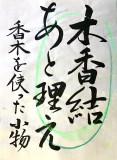 木香結
あと理え
香木を使った小物